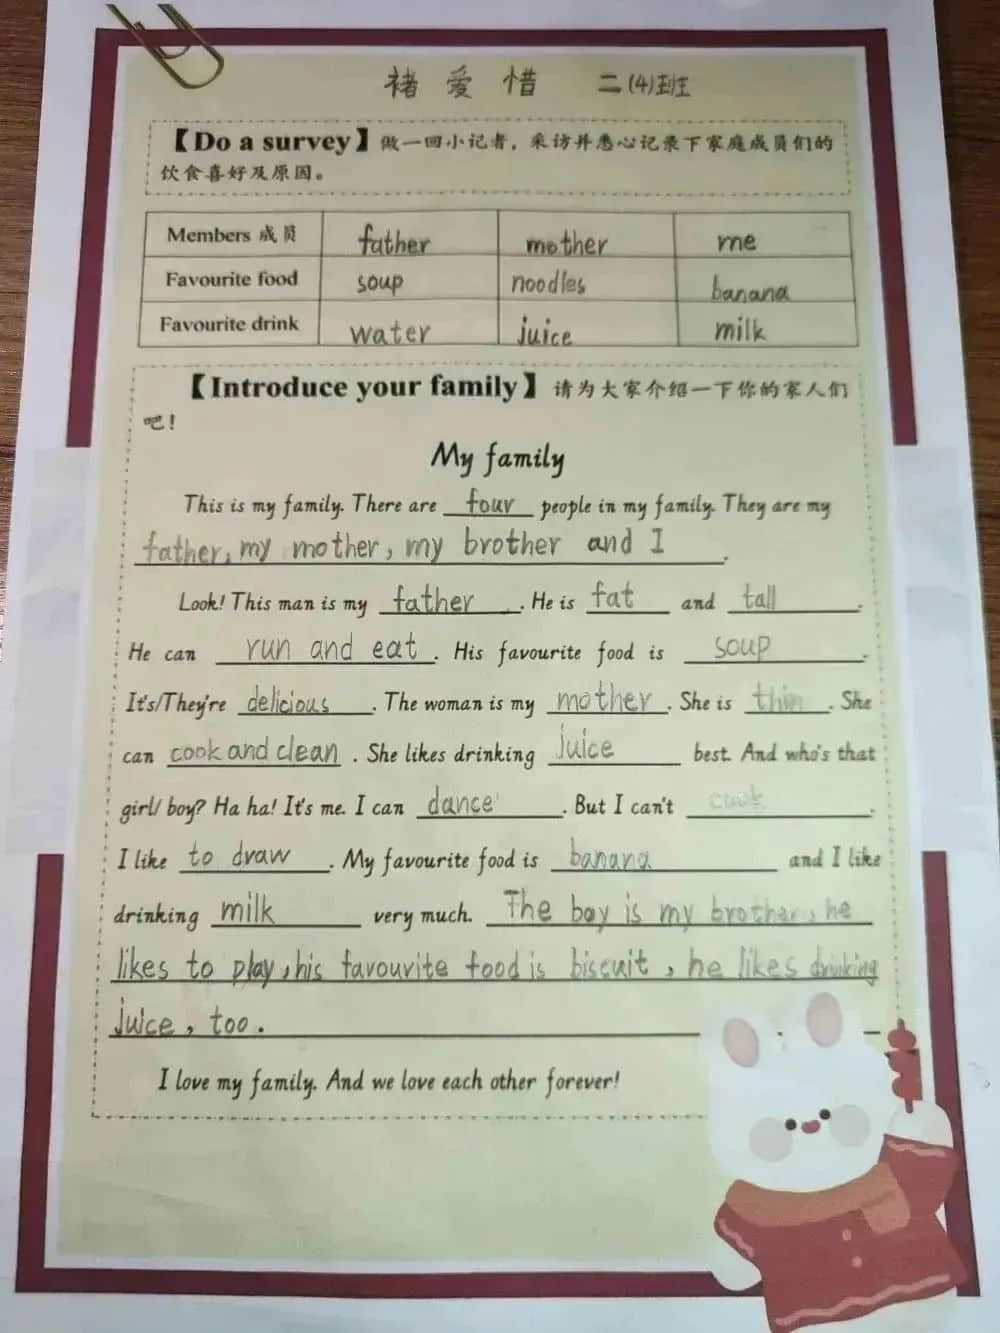 褚爱惜 二(4)班
【Do a survey】做一回小记者，采访并悉心记录下家庭成员们的
饮食喜好及原因。
Members 成员 father mother me
Favourite food soup noodles banana
Favourite drink water juice milk
【Introduce your family】请为大家介绍一下你的家人们
吧！
My family
This is my family. There are four people in my family. They are my
father, my mother, my brother and I.
Look! This man is my father. He is fat and tall.
He can run and eat. His favourite food is soup.
It's/They're delicious. The woman is my mother. She is thin. She
can cook and clean. She likes drinking juice best. And who's that
girl/boy? Ha ha! It's me. I can dance. But I can't cook.
I like to draw. My favourite food is banana and I like
drinking milk very much. The boy is my brother, he
likes to play, his favourite food is biscuit, he likes drinking
juice, too.
I love my family. And we love each other forever!